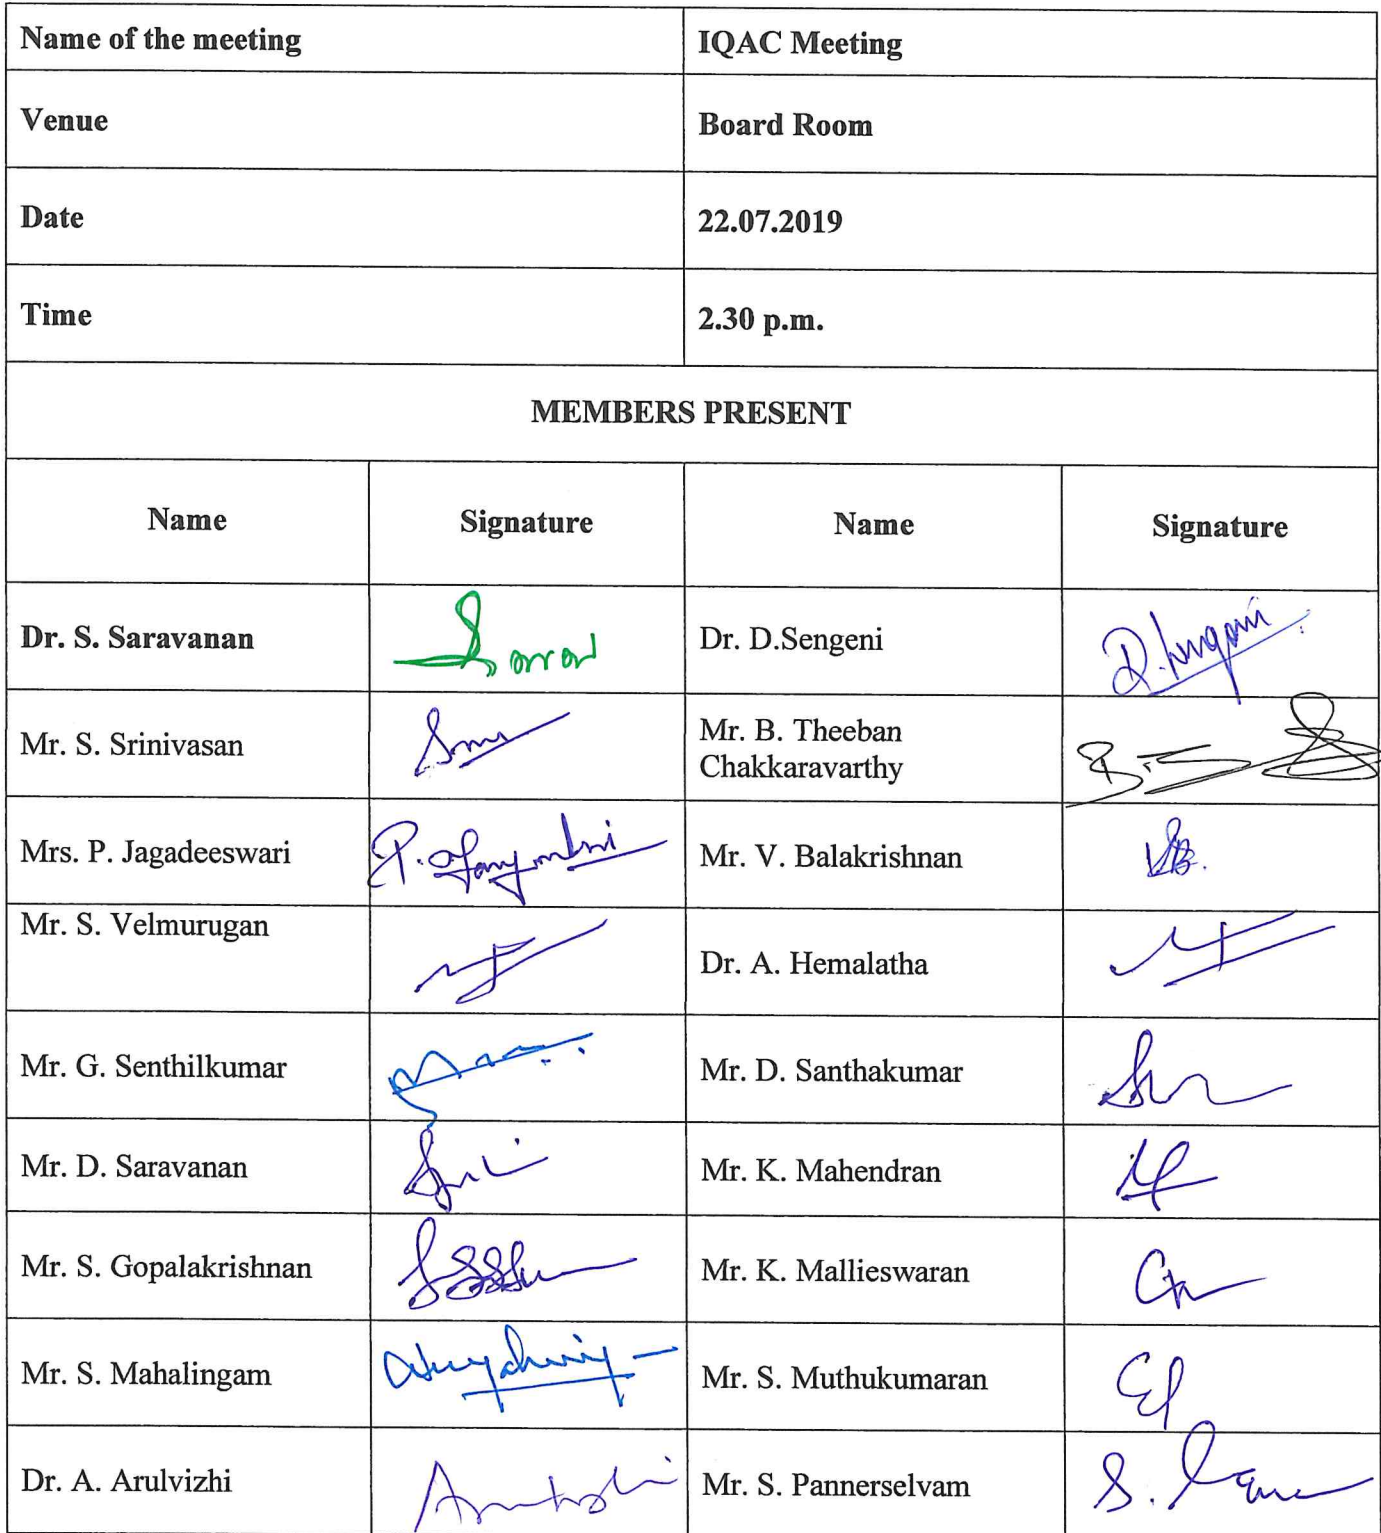 Name of the meeting IQAC Meeting
Venue Board Room
Date 22.07.2019
Time 2.30 p.m.
MEMBERS PRESENT
Name Signature Name Signature
Dr. S. Saravanan Dr. D.Sengeni
Mr. S. Srinivasan Mr. B. Theeban
Chakkaravarthy
Mrs. P. Jagadeeswari Mr. V. Balakrishnan
Mr. S. Velmurugan Dr. A. Hemalatha
Mr. G. Senthilkumar Mr. D. Santhakumar
Mr. D. Saravanan Mr. K. Mahendran
Mr. S. Gopalakrishnan Mr. K. Mallieswaran
Mr. S. Mahalingam Mr. S. Muthukumaran
Dr. A. Arulvizhi Mr. S. Pannerselvam